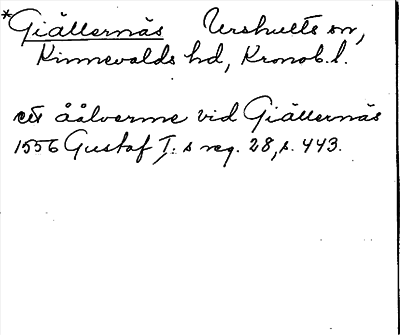 *Giällernäs Urshults sn,
Kinnevalds hd, Kronob. l.
ett åålverme vid Giällernäs
1556 Gustaf I:s reg. 28, s. 443.